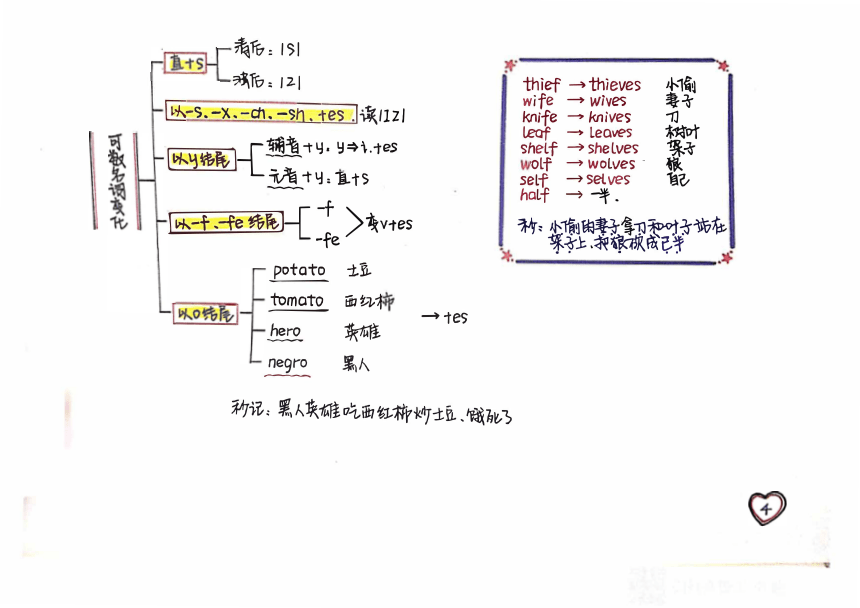 可数名词变化
直+s
清后：|s|
浊后：|z|
以-s、-x、-ch、-sh、+es.读|Iz|
以y结尾
辅音+y，y⇒i.+es
元音+y：直+s
以-f、-fe结尾
-f
-fe
变v+es
以o结尾
potato 土豆
tomato 西红柿
hero 英雄
negro 黑人
→+es
秒记：黑人英雄吃西红柿炒土豆、饿死了
thief → thieves 小偷
wife → wives 妻子
knife → knives 刀
leaf → leaves 树叶
shelf → shelves 架子
wolf → wolves 狼
self → selves 自己
half → 一半.
秒：小偷的妻子拿刀和叶子站在
架子上、把狼砍成己半
4